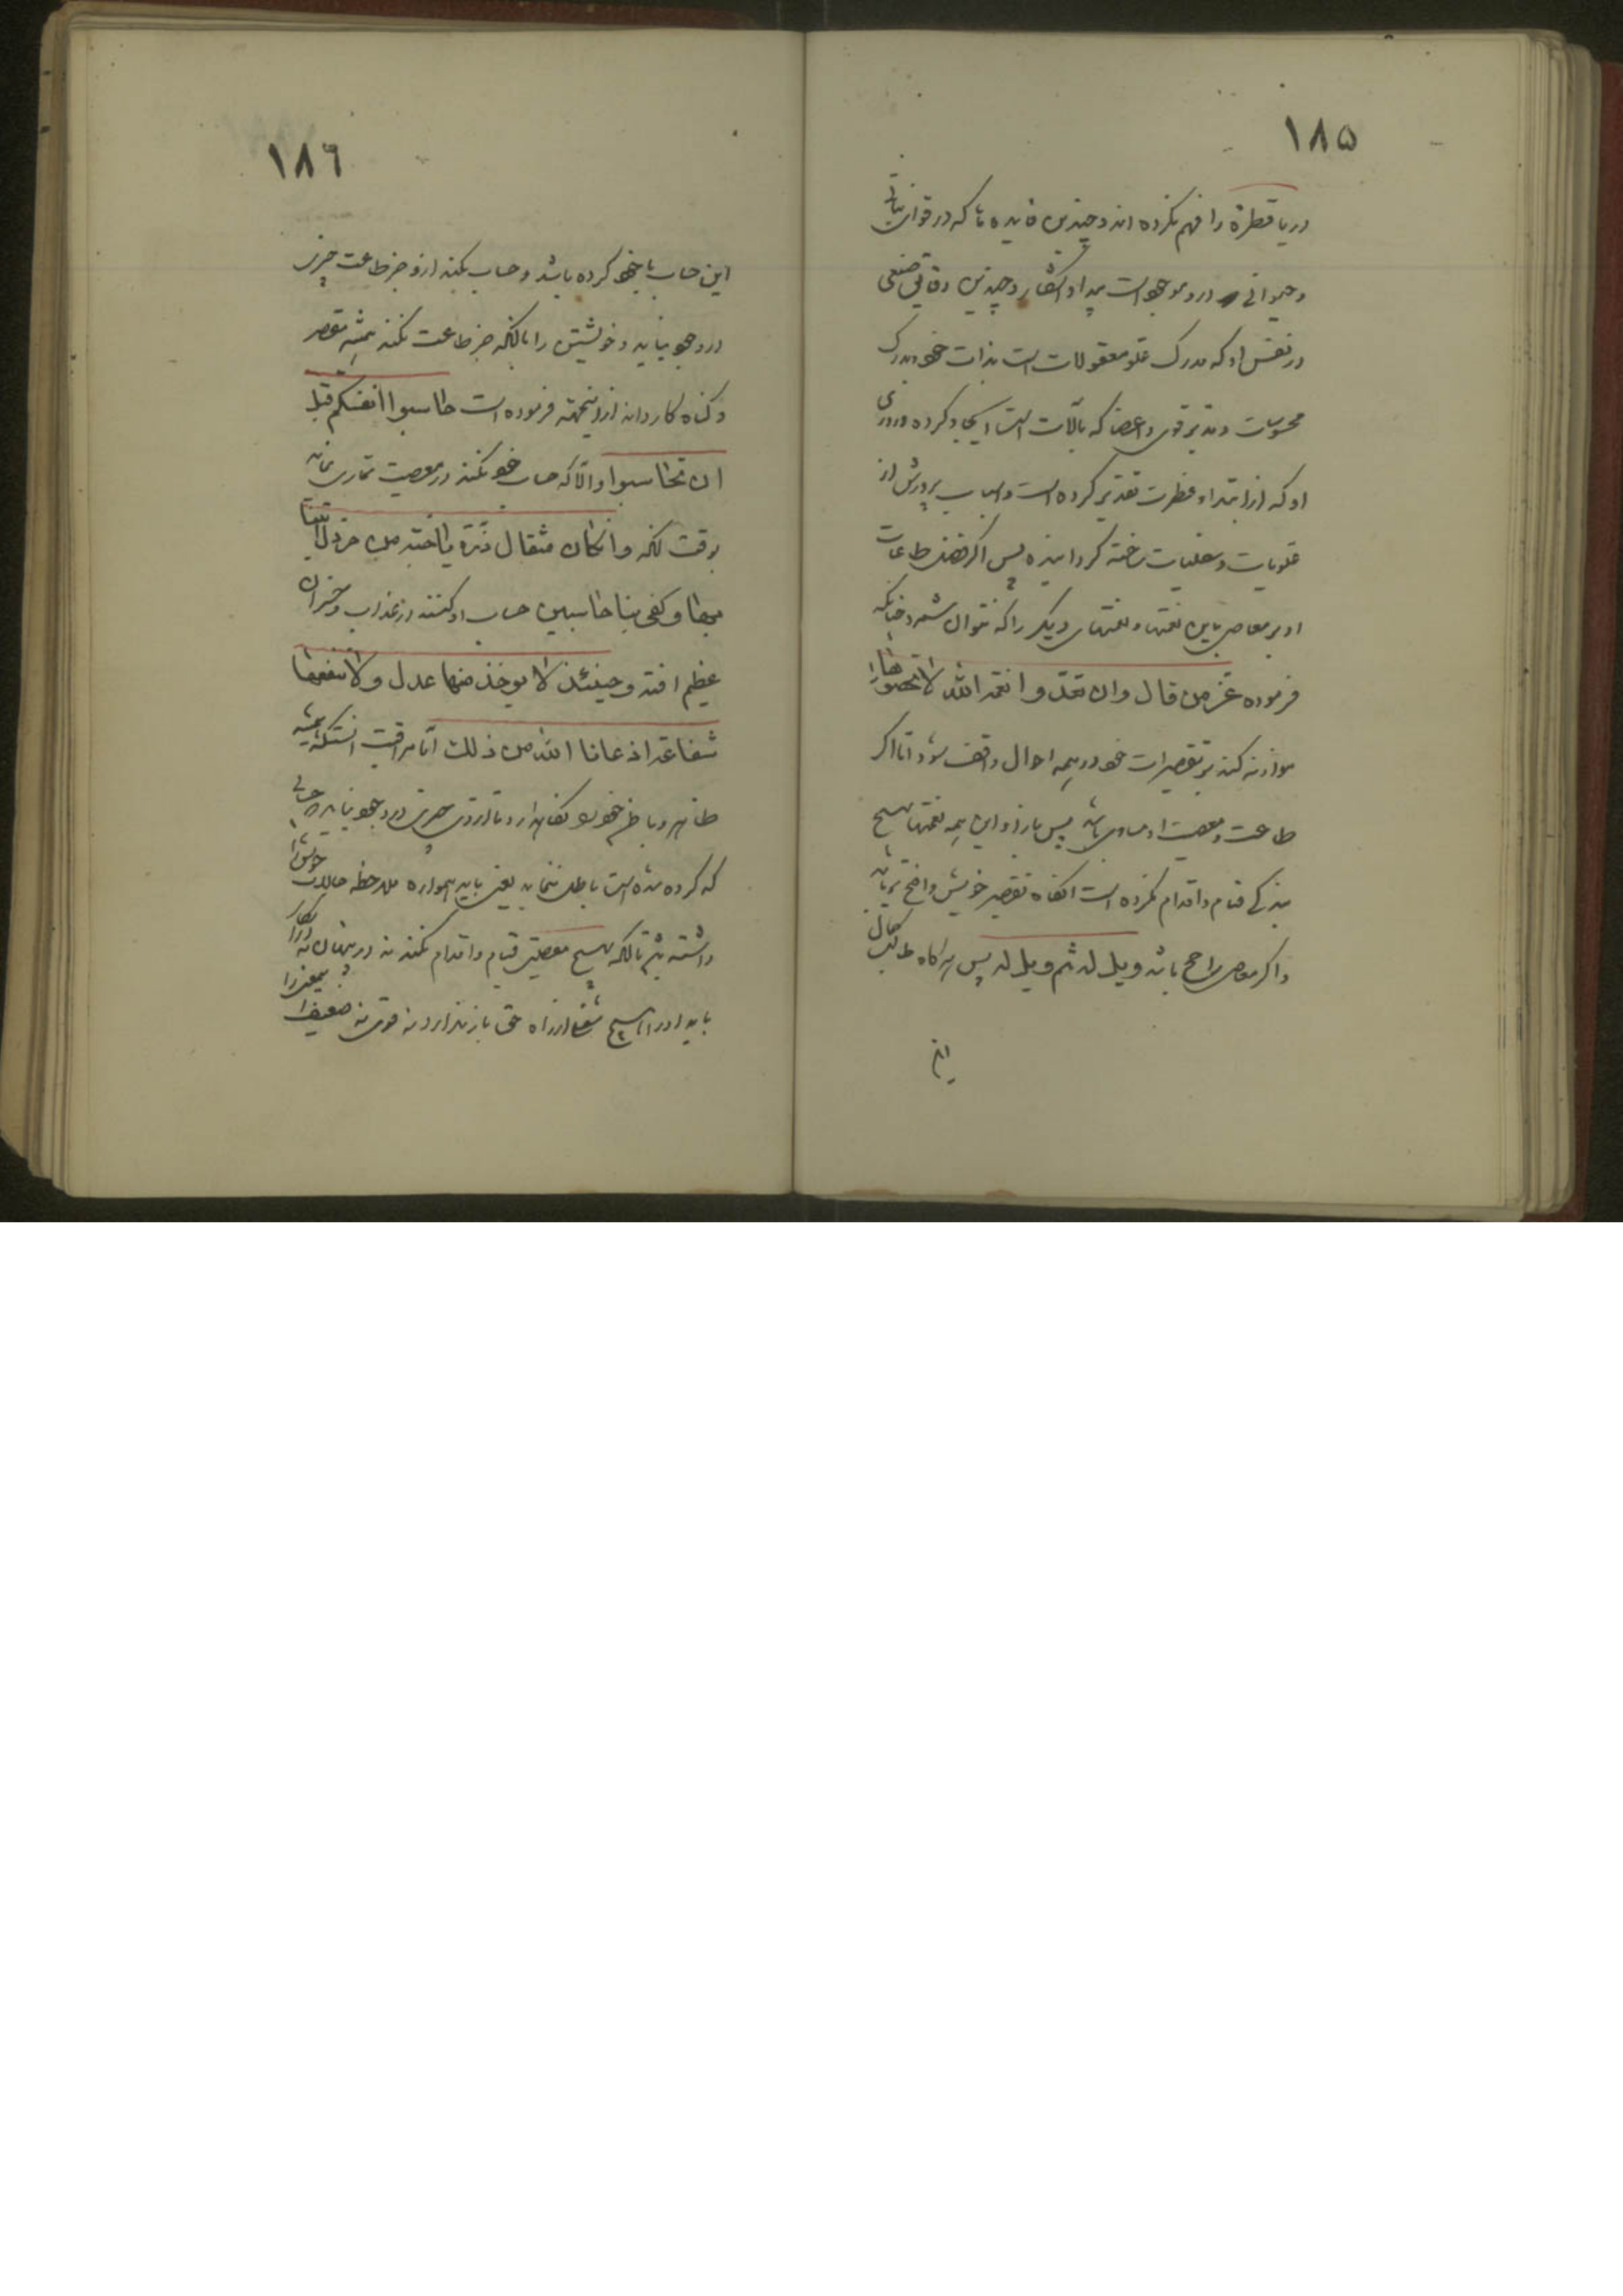 ١٨٥
دریا قطرهٔ را فهم نکرده اند و چندین فایده ها که در قوای نباتی
و حیوانی در او موجود است پیدا و آشکار و چندین دقایق صنعی
در نفس او که مدرک علو معقولات است بذات خود و مدرک
محسوسات و تدبیر قوی و اعضا که بآلات است ایجاد کرده و روزی
او که از ابتداء فطرت تقدیر کرده است و اسباب پرورش از
علویات و سفلیات ساخته گردانیده پس اگر فضل طاعات
او بر معاصی باین نعمتها و نعمتهای دیگر را که نتوان شمرد چنانکه
فرموده عز من قال وان تعدوا نعمة الله لا تحصوها
موازنه کند بر تقصیرات خود در همه احوال واقف شود اما اگر
طاعت و معصیت او مساوی باشد پس بازاء این همه نعمتها بهیچ
بندگی قیام و اقدام نکرده است آنگاه تقصیر خویش واضح تر باشد
و اگر معاصی راجح باشد ویل له ثم ویل له پس هرگاه طالب کمال
این
١٨٦
این حساب با خود کرده باشد و حساب بکند از و جز طاعت چیزی
در وجود نیاید و خویشتن را با آنکه جز طاعت نکند همیشه مقصر
و گناه کار داند از اینجهة فرموده است حاسبوا انفسکم قبل
ان تحاسبوا و الا که حساب خود نکند در معصیت تمادی نماید
بوقت آنکه وانکان مثقال ذرة یا حبة من خردل اتینا
بها وکفی بنا حاسبین حساب او کنند در عذاب و خسران
عظیم افتد وحینئذ لا یوخذ منها عدل ولا تنفعها
شفاعة اذ عانا الله من ذلک اما مراقبت آنستکه همیشه
ظاهر و باطن خود را نگاه دارد تا ازوی چیزی در وجود نیاید که حسناتی
که کرده شده است باطل نماید یعنی باید همواره ملاحظه حالات خویش را
داشته باشد تا آنکه بهیچ معصیتی قیام و اقدام نکند نه در پنهان نه آشکارا
باید او را هیچ شغلی از راه حق باز ندارد نه قوی نه ضعیف